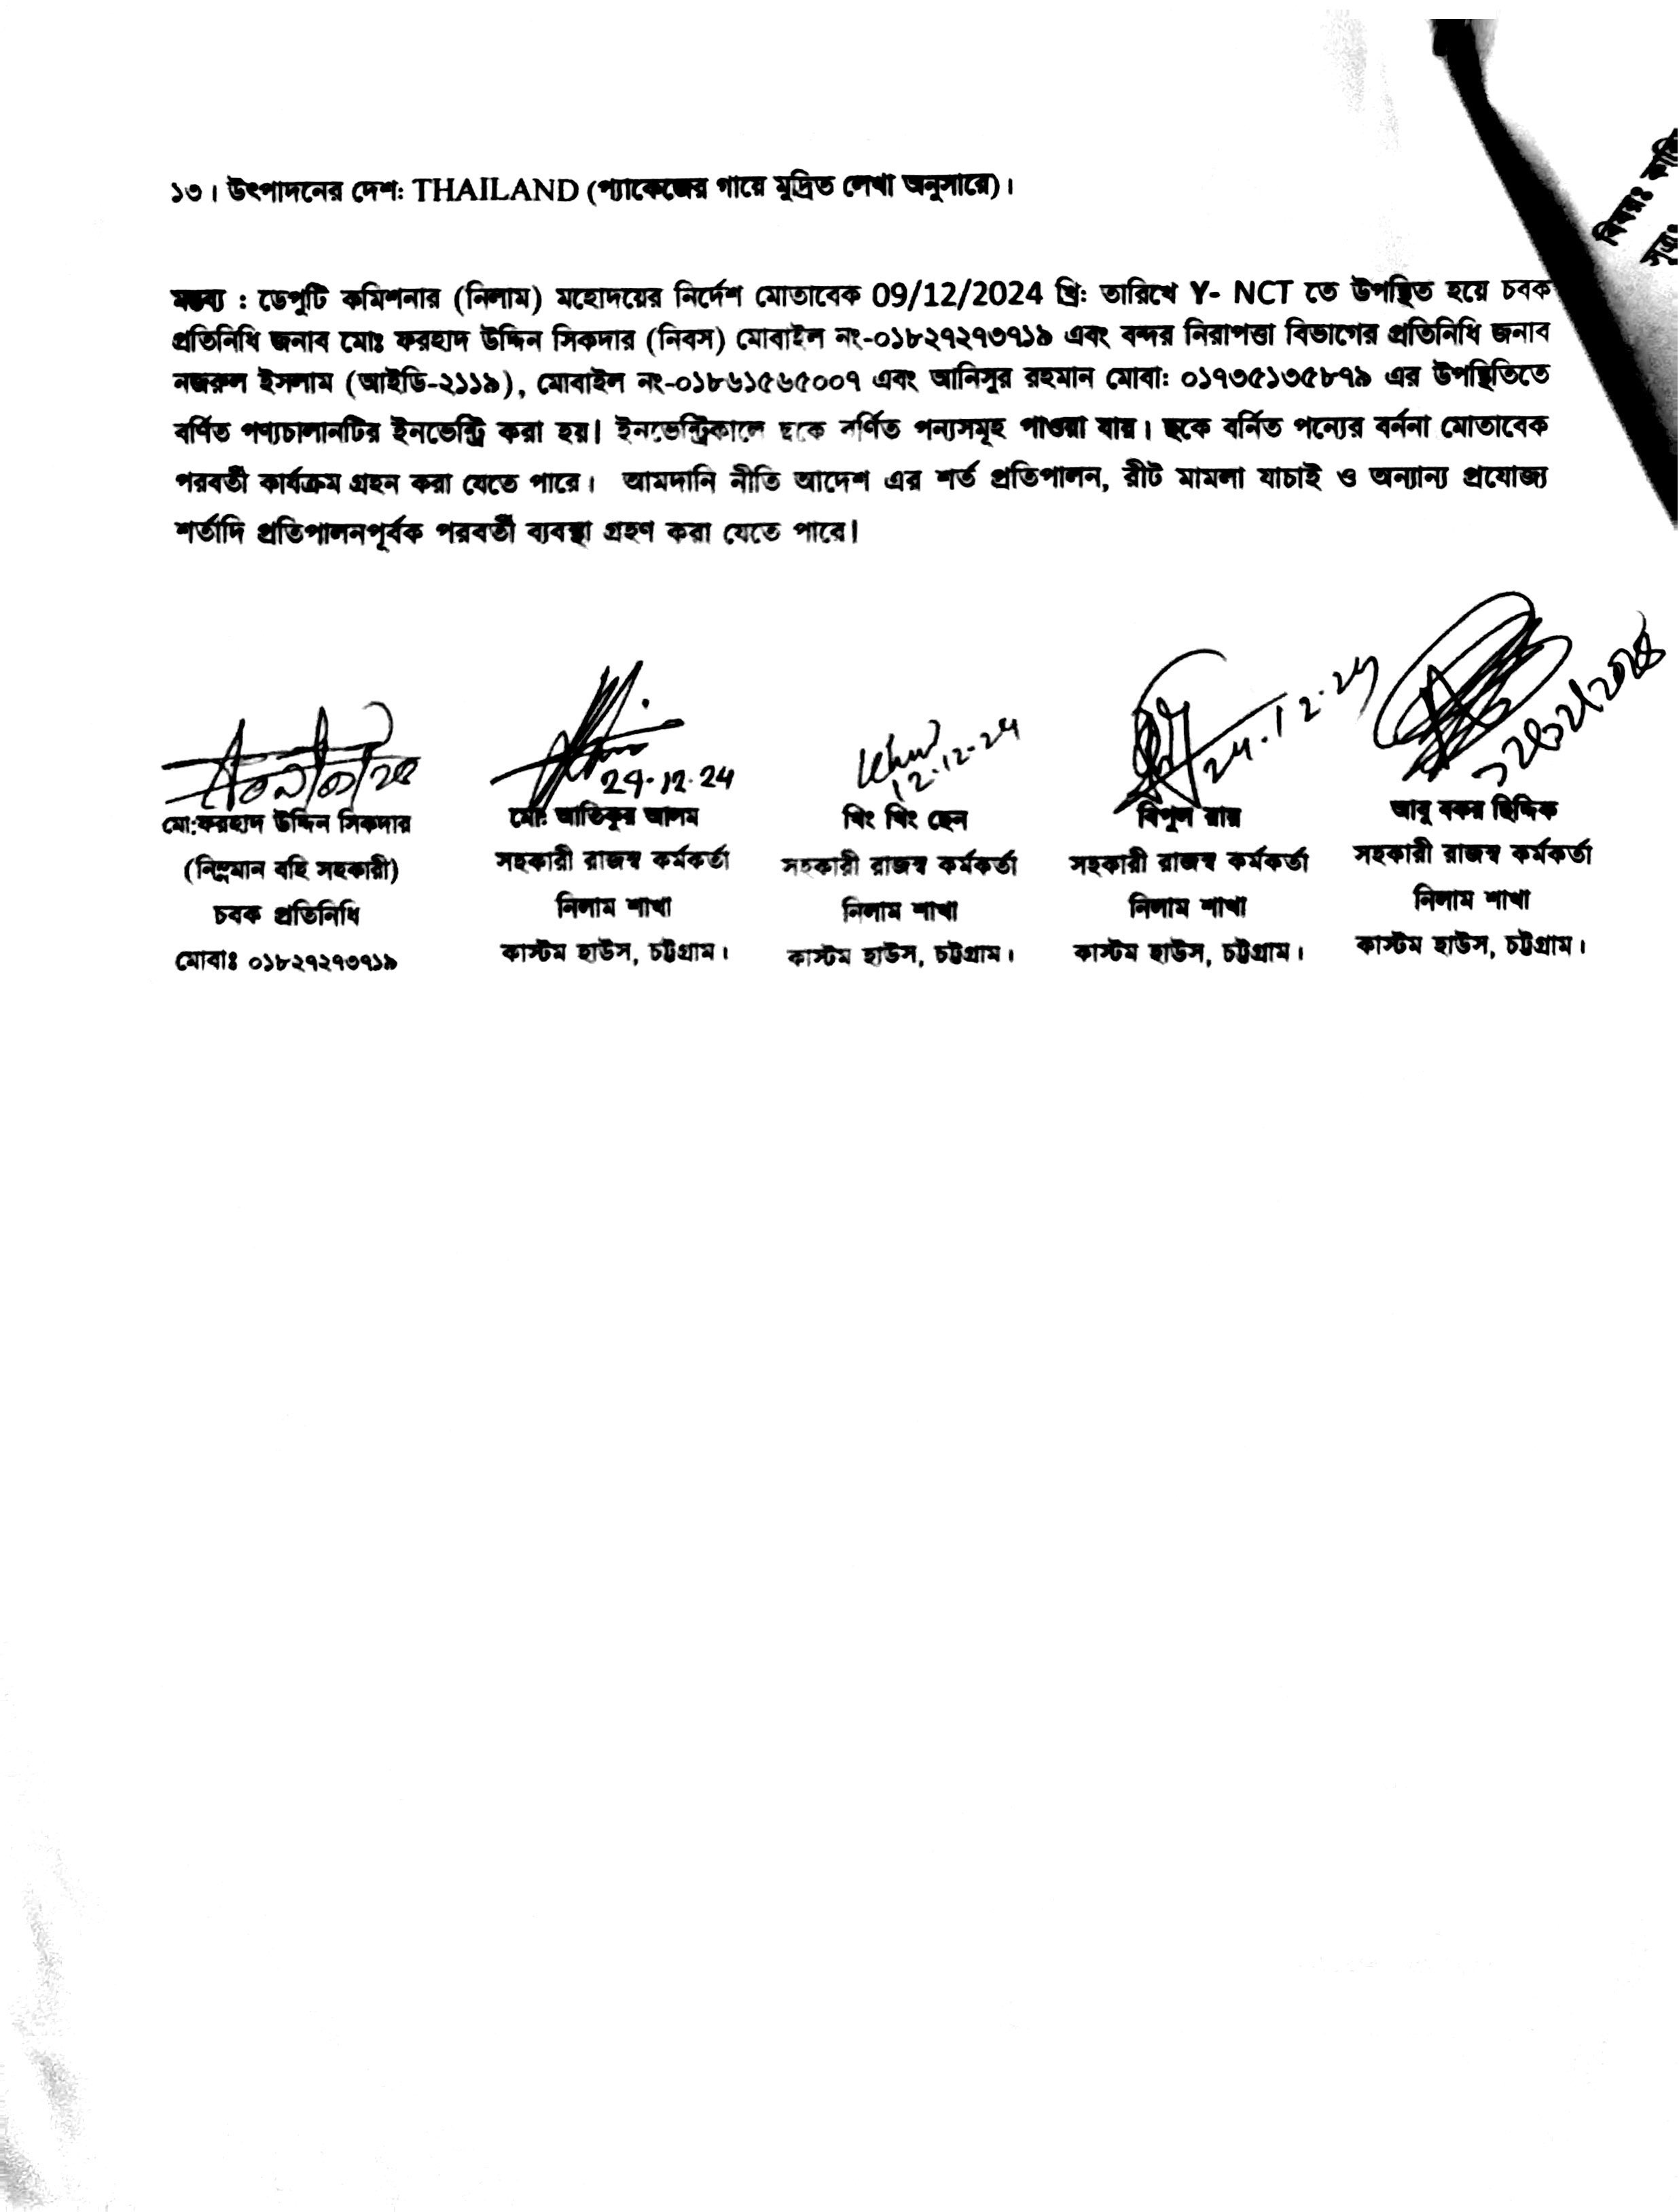 ১৩। উৎপাদনের দেশ: THAILAND (প্যাকেজের গায়ে মুদ্রিত লেখা অনুসারে)।
মন্তব্য : ডেপুটি কমিশনার (নিলাম) মহোদয়ের নির্দেশ মোতাবেক 09/12/2024 খ্রি: তারিখে Y- NCT তে উপস্থিত হয়ে চবক
প্রতিনিধি জনাব মোঃ ফরহাদ উদ্দিন সিকদার (নিবস) মোবাইল নং-০১৮২৭২৭৩৭১৯ এবং বন্দর নিরাপত্তা বিভাগের প্রতিনিধি জনাব
নজরুল ইসলাম (আইডি-২১১৯), মোবাইল নং-০১৮৬১৫৬৫০০৭ এবং আনিসুর রহমান মোবা: ০১৭৩৫১৩৫৮৭৯ এর উপস্থিতিতে
বর্ণিত পণ্যচালানটির ইনভেন্ট্রি করা হয়| ইনভেন্ট্রিকালে ছকে বর্ণিত পন্যসমূহ পাওয়া যায়। ছকে বর্নিত পন্যের বর্ননা মোতাবেক
পরবর্তী কার্যক্রম গ্রহন করা যেতে পারে। আমদানি নীতি আদেশ এর শর্ত প্রতিপালন, রীট মামলা যাচাই ও অন্যান্য প্রযোজ্য
শর্তাদি প্রতিপালনপূর্বক পরবর্তী ব্যবস্থা গ্রহণ করা যেতে পারে|
12-12-24
মো:ফরহাদ উদ্দিন সিকদার মো: আতিকুর আলম খিং খিং হেন বিপুল রায় আবু বকর ছিদ্দিক
(নিম্নমান বহি সহকারী) সহকারী রাজস্ব কর্মকর্তা সহকারী রাজস্ব কর্মকর্তা সহকারী রাজস্ব কর্মকর্তা সহকারী রাজস্ব কর্মকর্তা
চবক প্রতিনিধি নিলাম শাখা নিলাম শাখা নিলাম শাখা নিলাম শাখা
মোবাঃ ০১৮২৭২৭৩৭১৯ কাস্টম হাউস, চট্টগ্রাম। কাস্টম হাউস, চট্টগ্রাম। কাস্টম হাউস, চট্টগ্রাম। কাস্টম হাউস, চট্টগ্রাম।